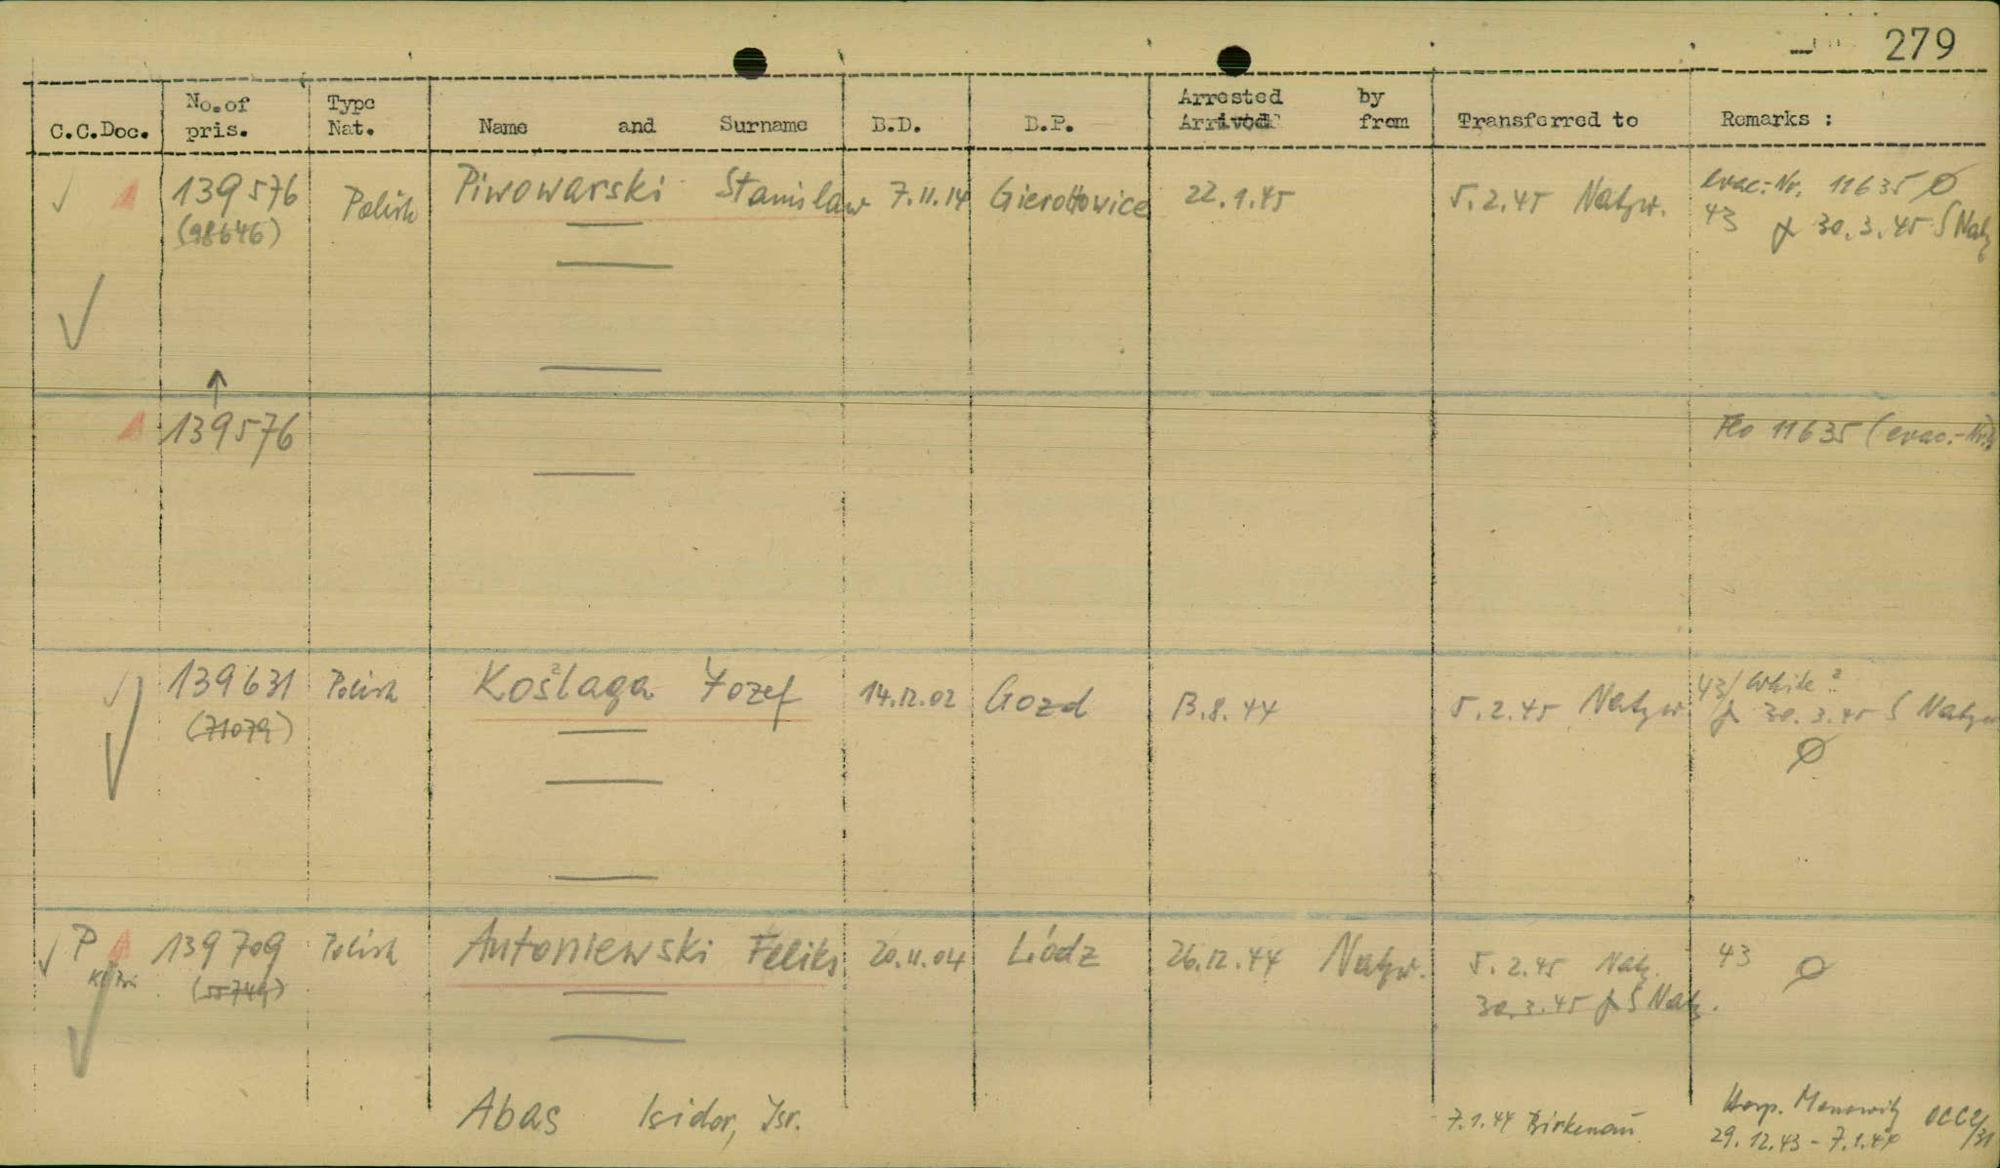 279
C.C.Doc. No.of pris. Type Nat. Name and Surname B.D. B.P. Arrested by Arrived from Transferred to Remarks :
139576 Polish Piwowarski Stanislaw 7.11.14 22.1.45 5.2.45 Natzw. evac.-Nr. 11635 Ø
(98646) 43 30.3.45 S Natz
139576 Flo 11635 (evac.-Nr.)
139631 Polish Košlaga Yozef 14.12.02 Gozd 13.8.44 5.2.45 Natzw 43/ white ?
(71079) 30.3.45 S Natzw
Ø
P 139709 Polish Antoniewski Feliks 20.11.04 Lódz 26.12.44 Natzw. 5.2.45 Natz. 43 Ø
(55749) 30.3.45 S Natz.
Abas Isidor, Isr. 7.1.44 Birkenau Hosp. Monowitz OCC2/31
29.12.43 - 7.1.44